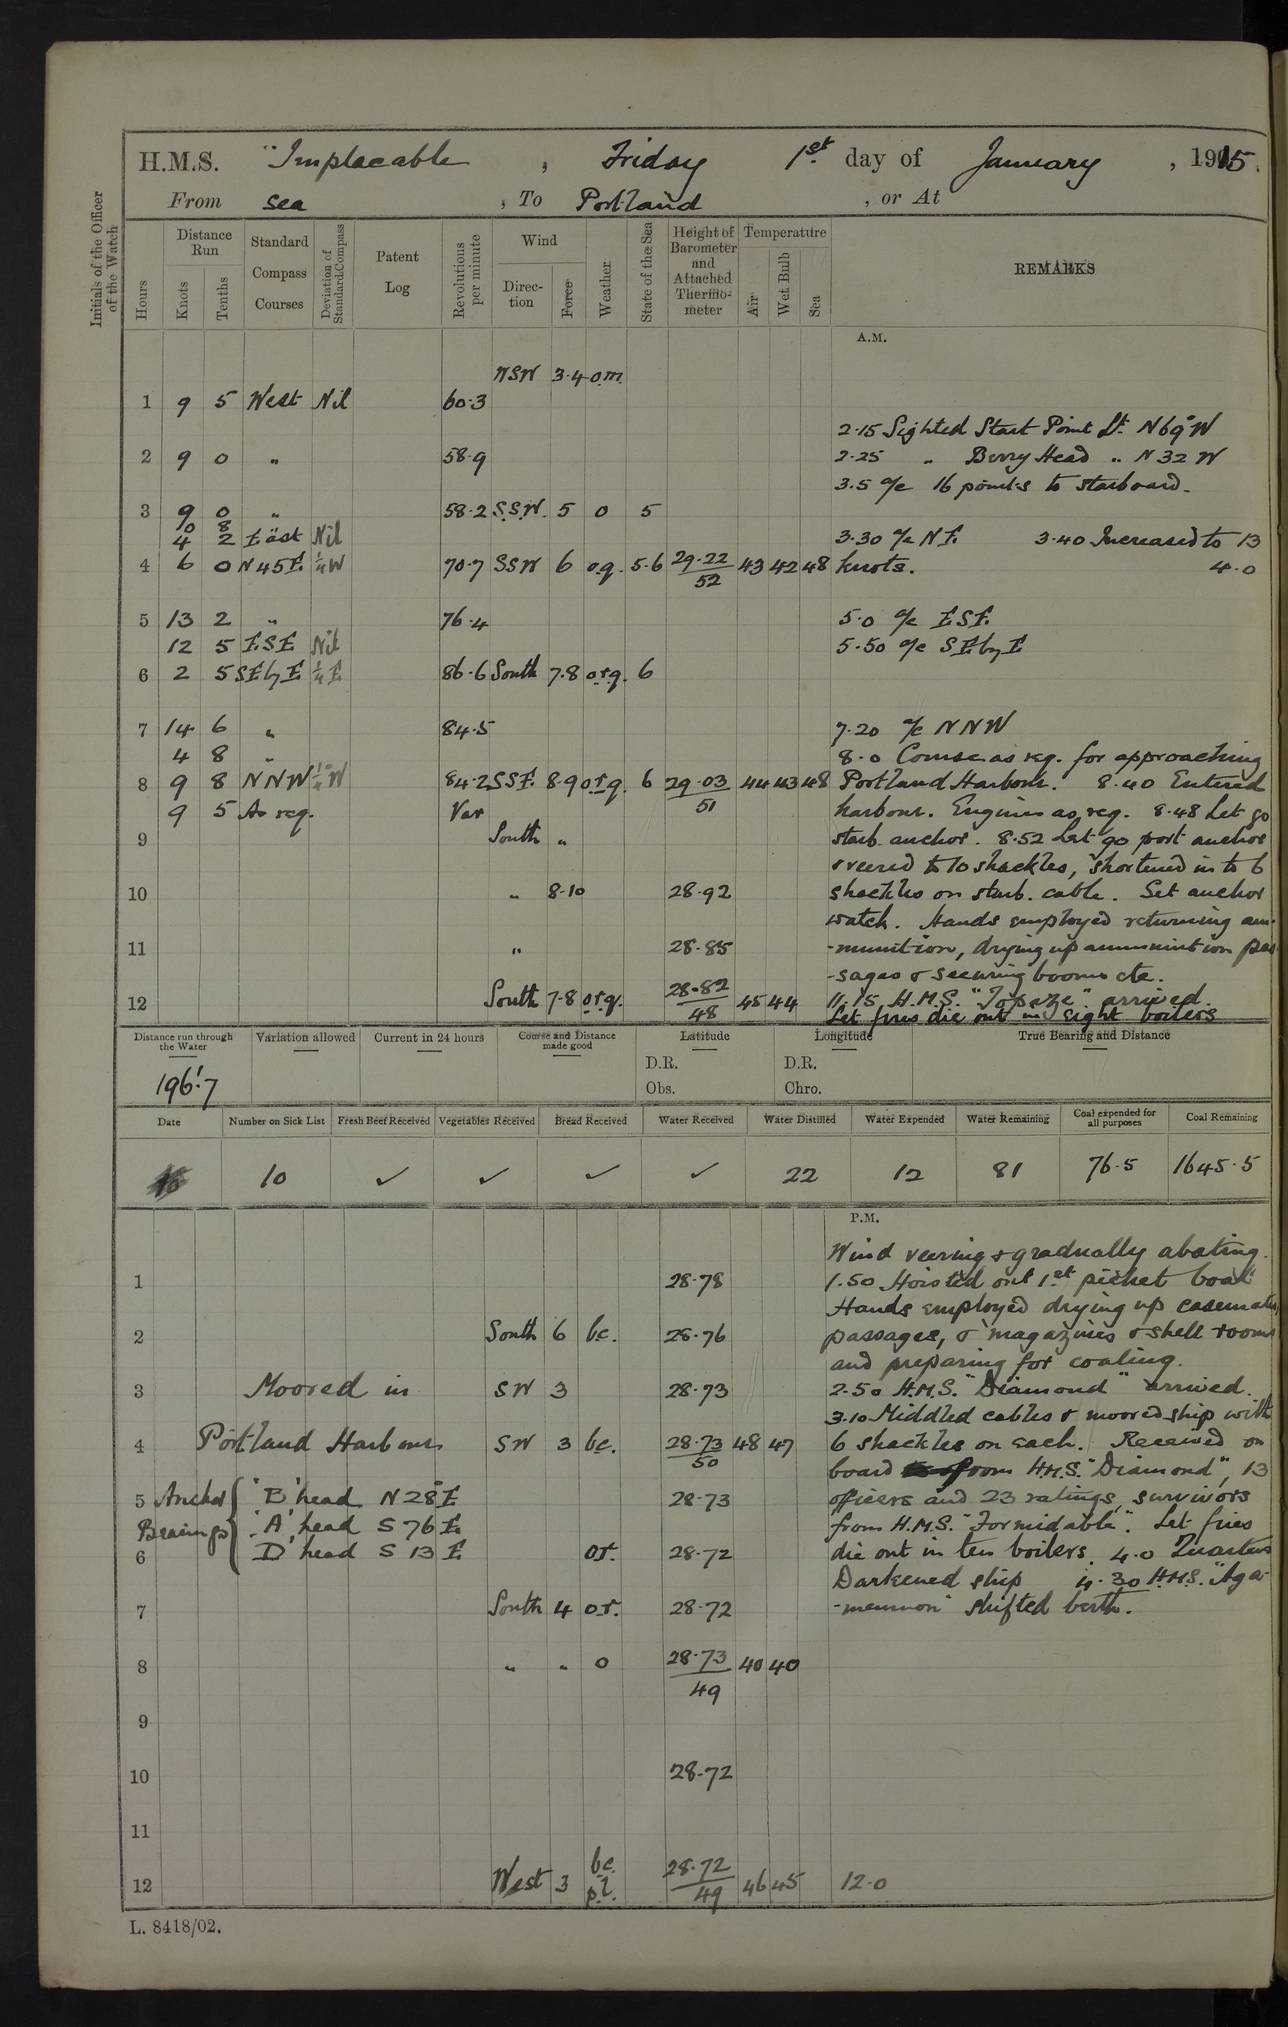 H.M.S. "Implacable , Friday 1st day of January , 1915.
From sea , To Portland , or At
Initials of the Officer of the Watch
Hours
Distance Run
Knots
Tenths
Standard Compass Courses
Deviation of Standard Compass
Patent Log
Revolutions per minute
Wind
Direction
Force
Weather
State of the Sea
Height of Barometer and Attached Thermometer
Temperature
Air
Wet Bulb
Sea
REMARKS
A.M.
WSW 3.4 o.m.
1 9 5 West Nil 60.3
2.15 Sighted Start Point Lt. N69°W
2 9 0 " 58.9 2.25 " Berry Head " N 32 W
3.5 a/c 16 points to starboard.
3 9 0 " 58.2 S.S.W. 5 0 5
0 8
4 2 East Nil 3.30 a/c N E. 3.40 Increased to 13
4 6 0 N45E. ¼W 70.7 SSW 6 o.q. 5.6 29.22/52 43 42 48 knots. 4.0
5 13 2 " 76.4 5.0 a/c E S E.
12 5 E.S.E. Nil 5.50 a/c S E by E
6 2 5 SE by E. ¼ E. 86.6 South 7.8 o.r.q. 6
7 14 6 " 84.5 7.20 a/c N N W
4 8 " 8.0 Course as req. for approaching
8 9 8 NNW ¼°W 84.2 SSE. 8.9 o.r.q. 6 29.03/51 44 43 48 Portland Harbour. 8.40 Entered
9 5 As req. Var harbour. Engines as req. 8.48 Let go
9 South " starb. anchor. 8.52 Let go port anchor
& veered to 10 shackles, shortened in to 6
10 " 8.10 28.92 shackles on starb. cable. Set anchor
watch. Hands employed returning am-
11 " 28.85 -munition, drying up ammunition pas-
-sages & securing booms etc.
12 South 7.8 o.r.q. 28.82/48 45 44 11.15 H.M.S. "Topaze" arrived.
Let fires die out in eight boilers
Distance run through the Water
Variation allowed
Current in 24 hours
Course and Distance made good
Latitude
Longitude
True Bearing and Distance
196!7
D.R.
Obs.
D.R.
Chro.
Date Number on Sick List Fresh Beef Received Vegetables Received Bread Received Water Received Water Distilled Water Expended Water Remaining Coal expended for all purposes Coal Remaining
10 ✓ ✓ ✓ ✓ 22 12 81 76.5 1645.5
P.M.
Wind veering & gradually abating.
1 28.78 1.50 Hoisted out 1st picket boat
Hands employed drying up casemates,
2 South 6 b.c. 28.76 passages, & magazines & shell rooms
and preparing for coaling.
3 Moored in SW 3 28.73 2.50 H.M.S. "Diamond" arrived.
3.10 Middled cables & moored ship with
4 Portland Harbour SW 3 b.c. 28.73/50 48 47 6 shackles on each. Received on
board from H.M.S. "Diamond", 13
5 Anchor "B' head N 28°E 28.73 officers and 23 ratings, survivors
Bearings 'A' head S 76 E. from H.M.S. "Formidable". Let fires
6 'D' head S 13 E. o.r. 28.72 die out in ten boilers. 4.0 Quarters
Darkened ship 4.30 H.M.S. "Aga-
7 South 4 o.r. 28.72 -memnon" shifted berth.
8 " " 0 28.73/49 40 40
9
10 28.72
11
12 West 3 b.c. p.l. 28.72/49 46 45 12.0
L. 8418/02.